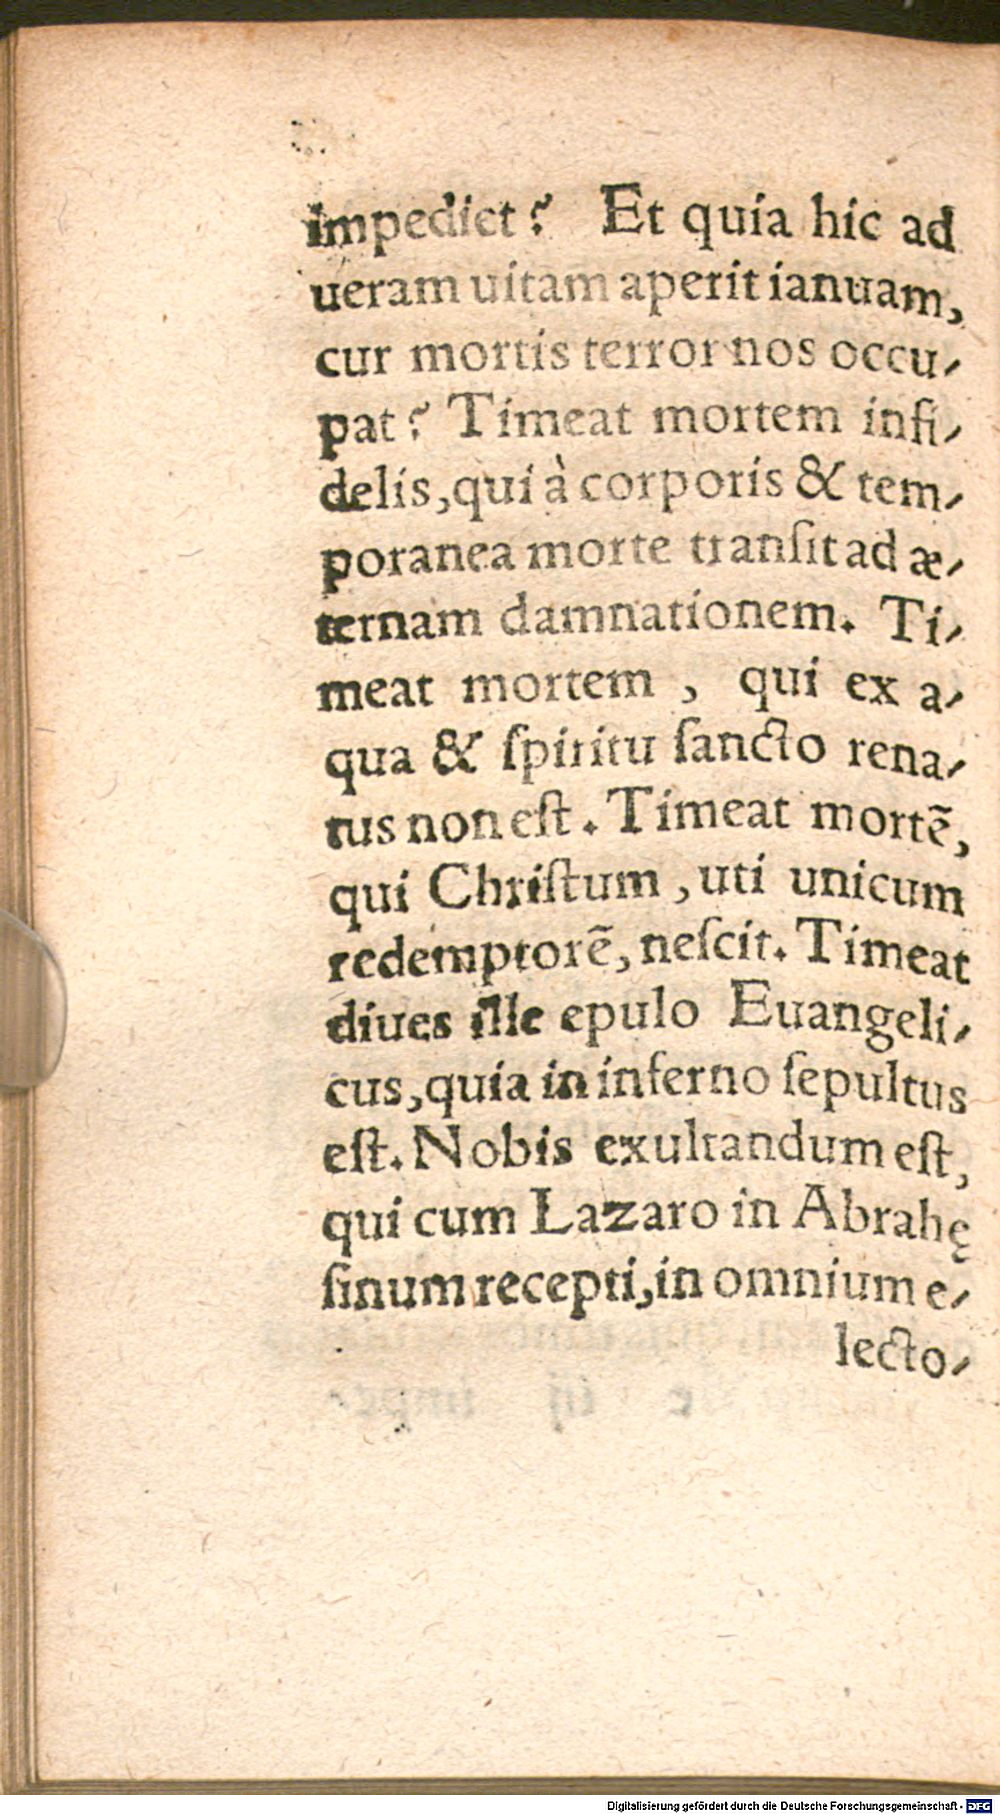 impediet? Et quia hic ad
ueram uitam aperit ianuam,
cur mortis terror nos occu-
pat? Timeat mortem infi-
delis, qui à corporis & tem-
poranea morte transit ad æ-
ternam damnationem. Ti-
meat mortem, qui ex a-
qua & spiritu sancto rena-
tus non est. Timeat mortẽ,
qui Christum, uti unicum
redemptorẽ, nescit. Timeat
diues ille epulo Euangeli-
cus, quia in inferno sepultus
est. Nobis exultandum est,
qui cum Lazaro in Abrahę
sinum recepti, in omnium e-
lecto-
Digitalisierung gefördert durch die Deutsche Forschungsgemeinschaft - DFG